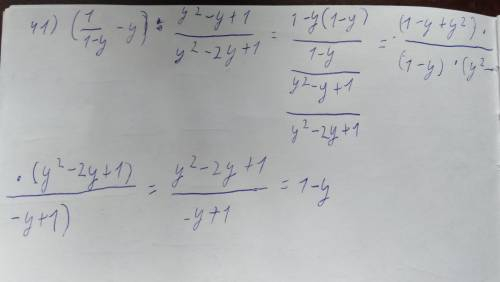 41) (1/(1-y) - y) : (y²-y+1)/(y²-2y+1) = ((1-y(1-y))/(1-y))/((y²-y+1)/(y²-2y+1)) = (1-y+y²)·/(1-y)·(y²-
·(y²-2y+1)/-y+1) = (y²-2y+1)/(-y+1) = 1-y